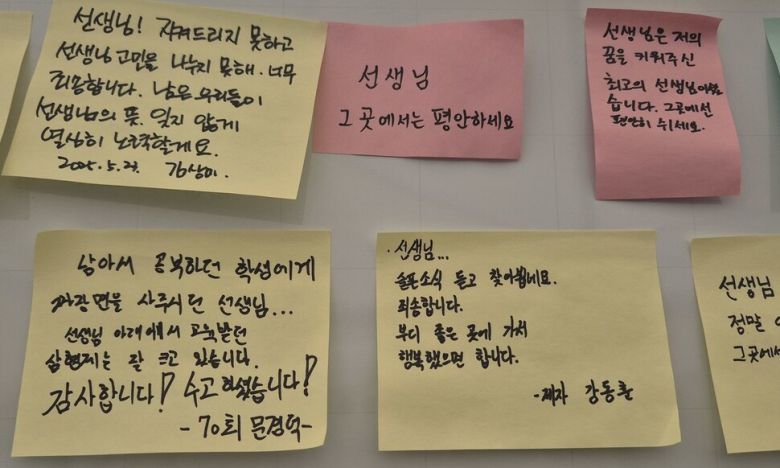 선생님! 지켜드리지 못하고
선생님 고민을 나누지 못해. 너무
죄송합니다. 남은 우리들이
선생님의 뜻. 잊지 않게
열심히 노력할게요.
2025.5.23. 김상미.
선생님
그 곳에서는 평안하세요
선생님은 저의
꿈을 키워주신
최고의 선생님이셨
습니다. 그곳에선
편안히 쉬세요.
남아서 공부하던 학생에게
자장면을 사주시던 선생님...
선생님 아래에서 교육받던
삼형제는 잘 크고 있습니다.
감사합니다! 수고하셨습니다!
-70회 문경덕-
·선생님...
슬픈소식 듣고 찾아봽네요.
죄송합니다.
부디 좋은 곳에 가서
행복했으면 합니다.
-제자 강동훈
선생님
정말
그곳에서